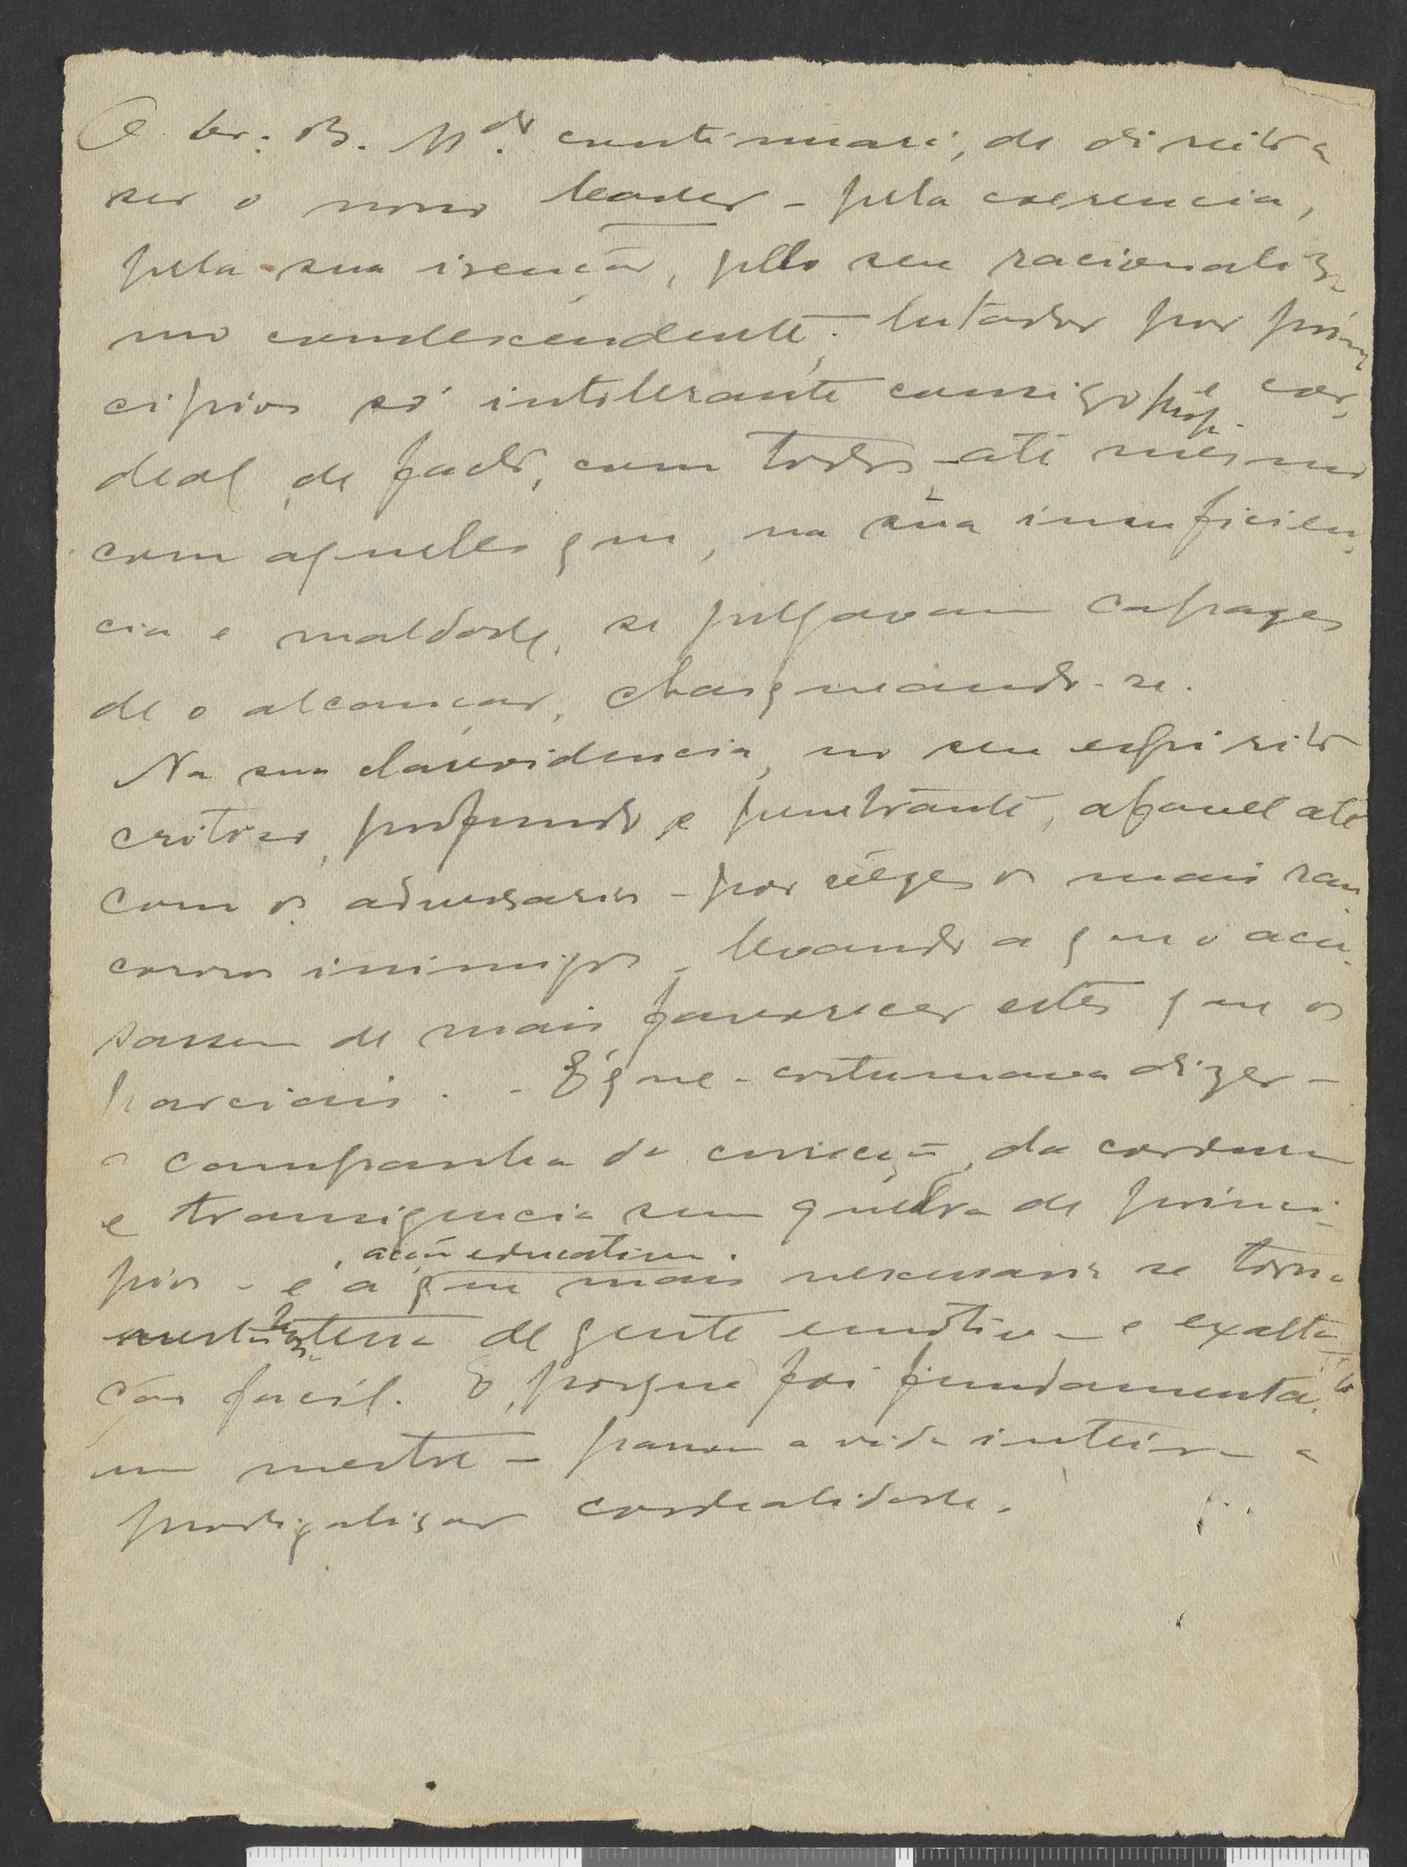 O Dr. B. M.do continuará, de direito a
ser o nosso leader - pela coerencia,
pela sua isenção, pello seu racionalis-
mo condescendente; lutador por prin-
cipios só intolerante comsigo prop. e cor-
deal, de facto, com todos - até mesmo
com aqueles que, na sua insuficien-
cia e maldade, se julgavam capazes
de o alcançar, chasqueando-se.
Na sua clarevidencia, no seu espirito
critico, profundo e penetrante, afavel até
com os adversarios - por vezes os mais ran-
corosos inimigos - levando a que o acu-
sassem de mais favorecer estes que os
parciais. - É que - costumava dizer -
a campanha de correcção, da cordura
e transigencia sem quebra de princi-
pios - e, acção educativa. a que mais nescessaria se torna
terra de gente emotiva e exalta-
ção facil. E, porque foi fundamental-
um mestre - passou a vida inteira a
prodigalisar cordealidade.